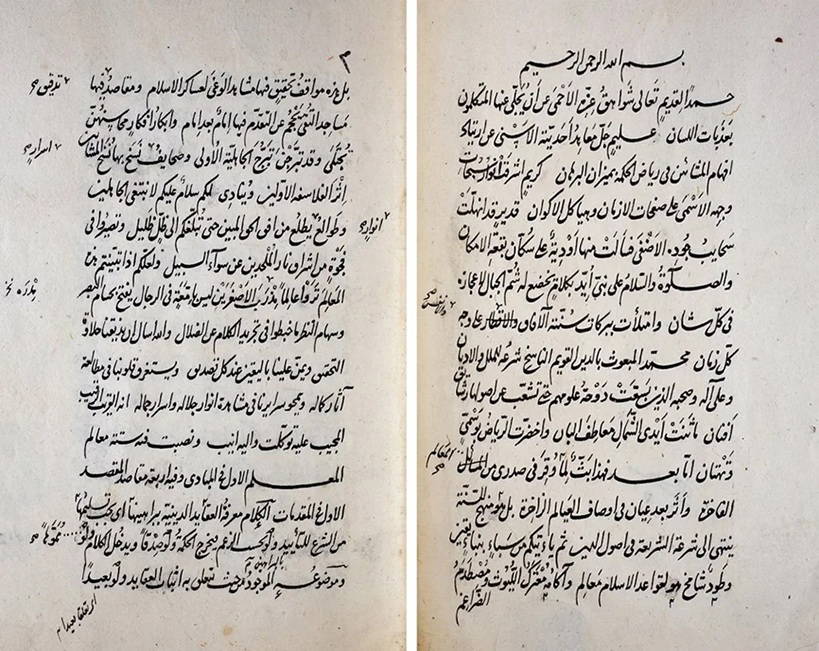 بسم الله الرحمن الرحيم
حمدا لقديم تعالى شواهق عزه الأحمى عن أن يحلق عنها المتكلمون
بعذبات اللسان عليم جل معاهد أحديته الأسنى عن ارتياد
افهام المشائين في رياض الحكمة بميزان البرهان كريم اشرقت انوار سبحات
وجهه الأسمى على صفحات الازمان وهياكل الاكوان قدير قد انهلت
سحايب جوده الأضفى فسالت منها أودية على سكان بقعة الامكان
والصلوة والسلام على نبي أيد بكلام يخضع له شم الجبال لإعجازه
في كل شان وامتلأت ببركات سنته الآفاق والاقطار على وجه
كل زمان محمد المبعوث بالدين القويم الناسخ شرعه الملل والاديان
وعلى آله وصحبه الذين بسقت دوحة علومهم حتى تشعب عن اصولها
أفنان ما ثنت أيدي الشمال معاطف البان واخضرت الرياض بوسمي
وتهتان اما بعد فهذا بث لما وقر في صدري من
الفاخرة وأثر بعد عيان في اوصاف العيالم الزاخرة بل هو منهج السنة
ينتهي الى شرعة الشريعة في اصول الدين ثم يأتيكم من سبإ بنبإ يقين
وطود شامخ هو لقواعد الاسلام معالم وآكام معترك الليوث ومصطدم
الضراغم
٢
بل هذه مواقف تحقيق فيها مشاهد الوغى لعساكر الاسلام ومقاصد فيها
مساجد التقى يحجم عن التقدم فيها إمام بعد امام وابكار افكار محاسنهن
تجتلى وقد تبرجن تبرج الجاهلية الأولى وصحايف نسخ بها نسخ المشائين
إثر الفلاسفة الأولين وينادى لكم سلام عليكم لا نبتغي الجاهلين
وطوالع يطلع من افق الحق المبين حتى تبلغكم الى ظل ظليل وتصيروا في
فجوة من اشراق نار الملحدين عن سوآء السبيل ولعلكم اذا اتيتم من
المعالم تروا عالما بذر بى الأصغرين ليس بإمعة في الرجال يفتح بحسام البصر
وسهام النظر ما خبطوا في تجريد الكلام عن الضلال والله اسأل ان يذيقنا حلاوة
التحقيق ويمن علينا باليقين عند كل تصديق ويستغرق قلوبنا في مطالعة
آثار كماله ويمحو سرايرنا في مشاهدة انوار جلاله واسرار جماله انه القريب الرقيب
المجيب عليه توكلت واليه انيب ونصبت فيه ستة معالم
المعلم الاول في المبادى وفيه اربعة مقاصد المقصد
الاول في المقدمات الكلام معرفة العقايد الدينية ببراهينها اى يجب تسليمها
من الشرع للتأييد ولو بحسب الزعم فيخرج الحكمة ولو صدقا ويدخل الكلام ولو
وموضوعه الموجود من حيث تعلق به اثبات العقايد ولو بعيدا
تدقيق صح
اسرار صح
انوار صح